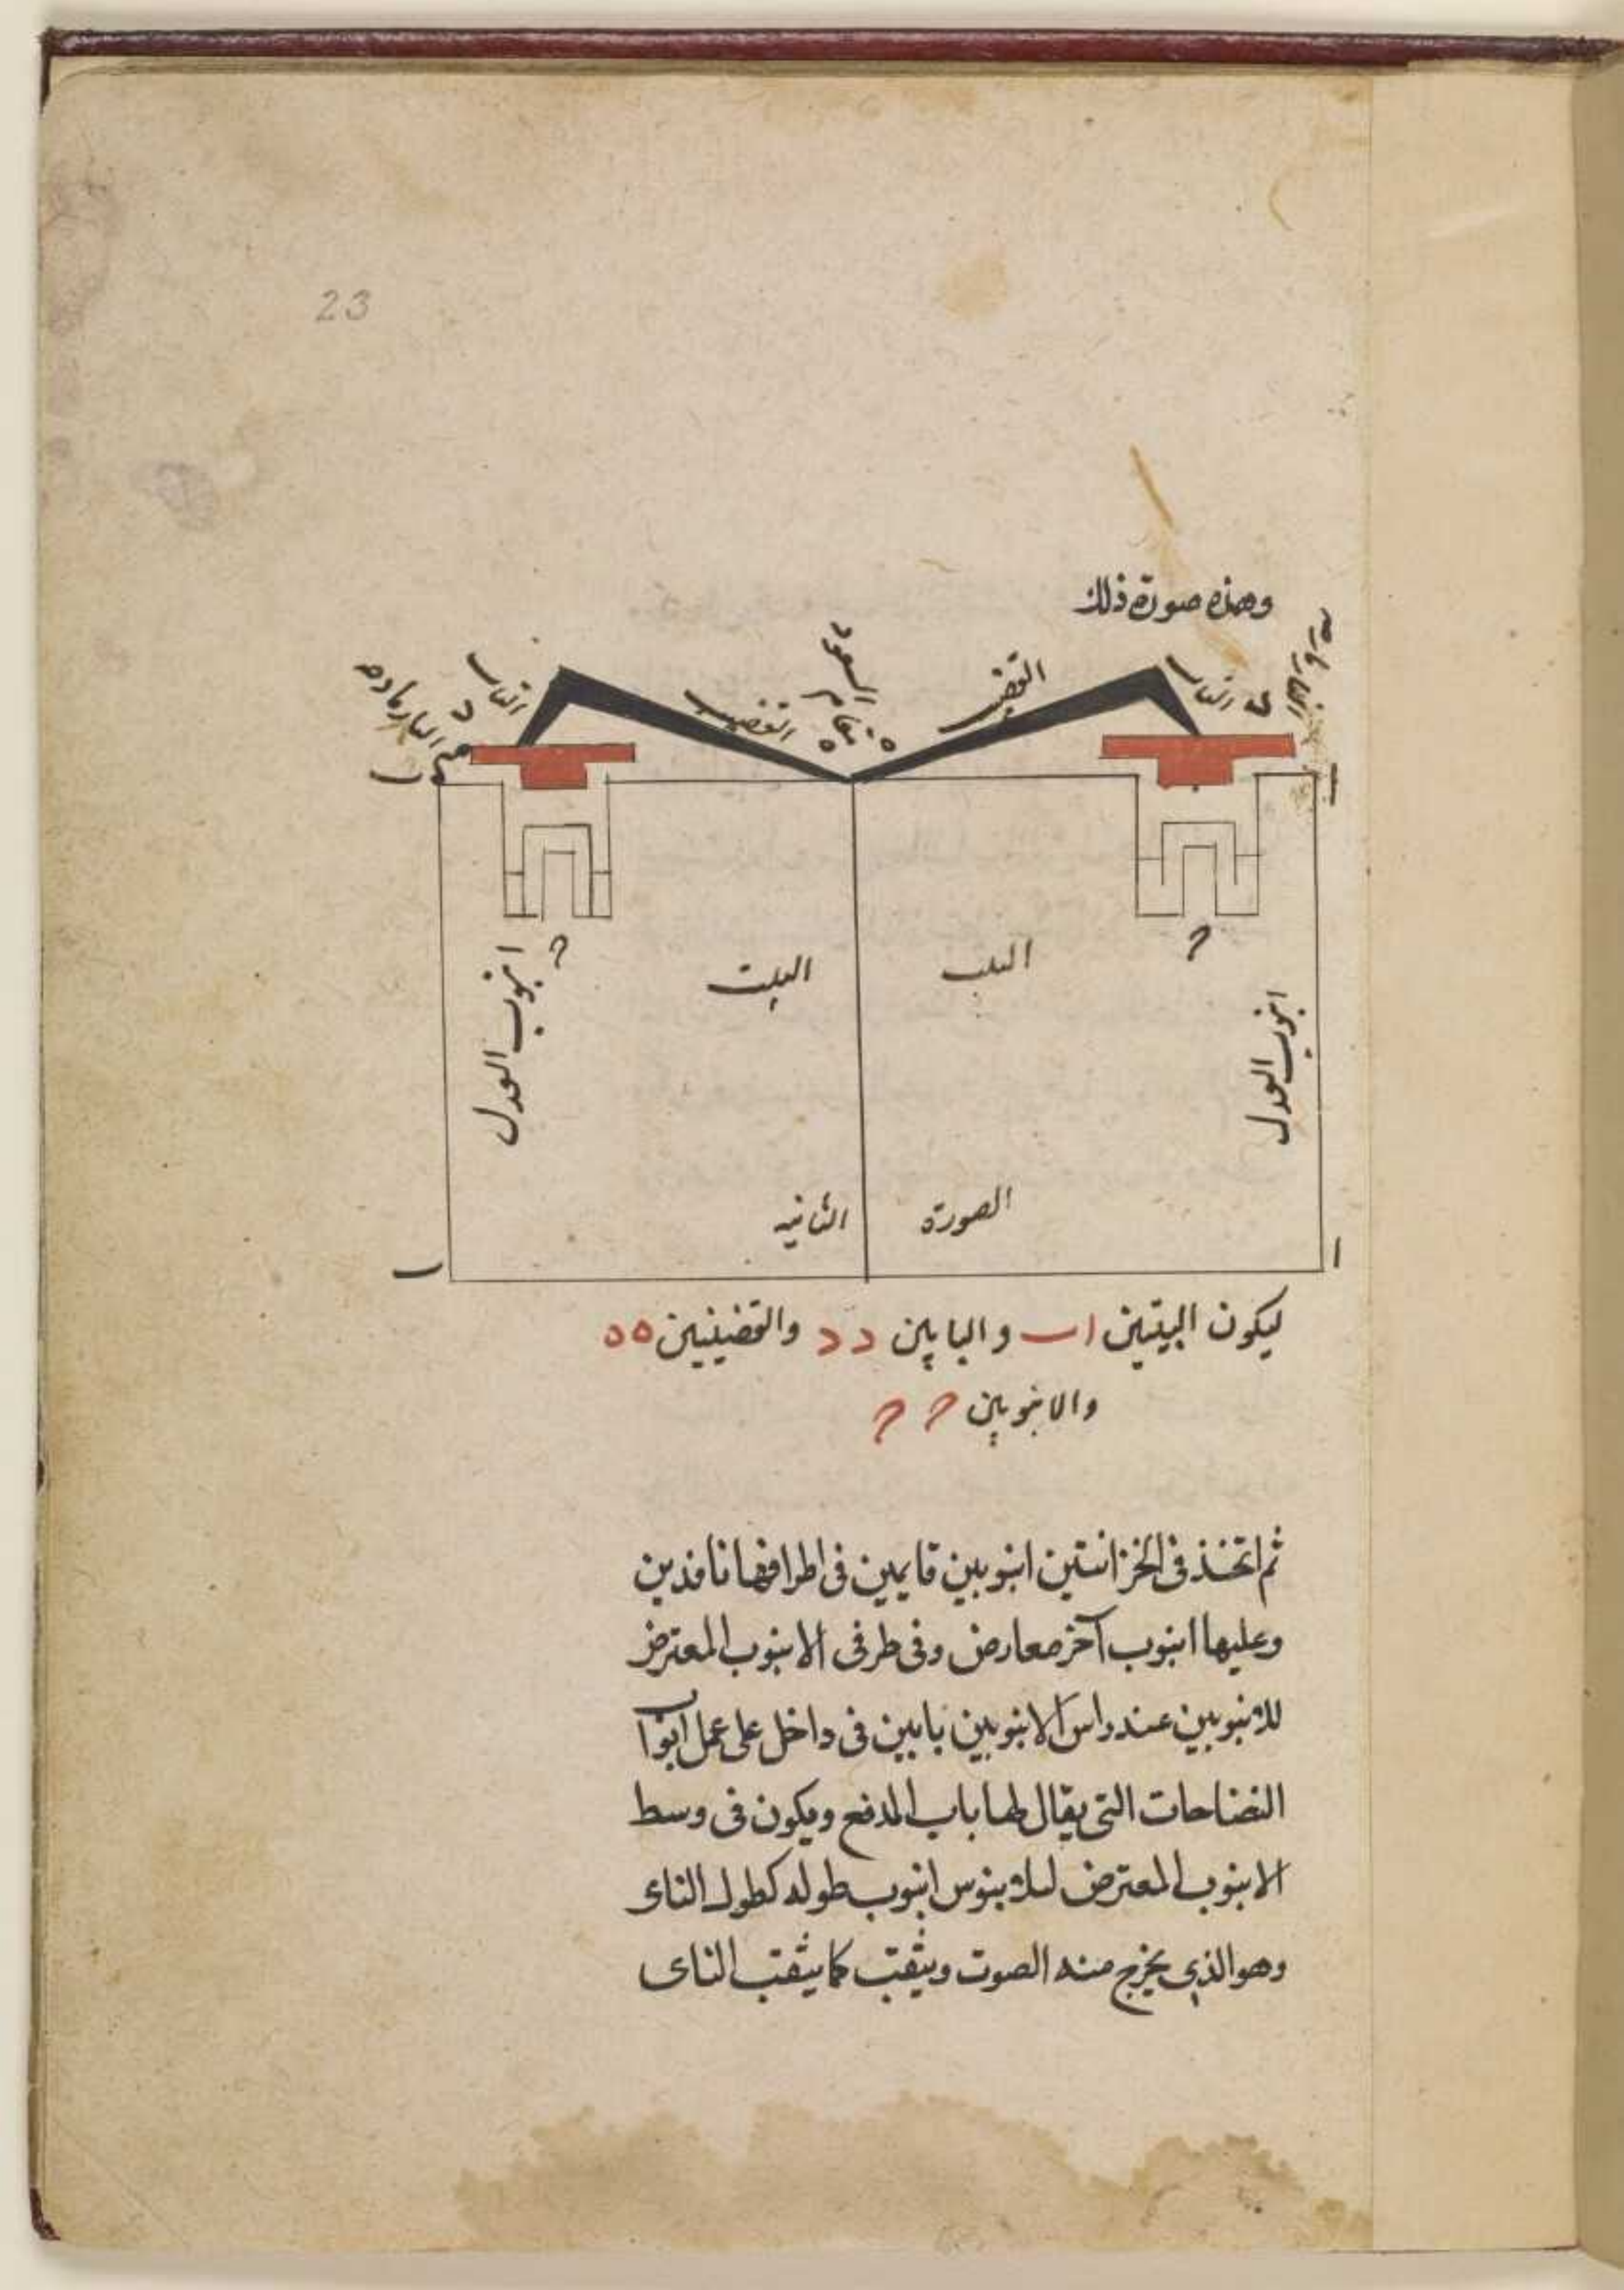 23
وهذه صورة ذلك
القضيب
القضيب
البيت
البيت
انبوب العدل
انبوب العدل
الصورة
الثانيه
ليكون البيتين ا ب والبابين د د والقضيبين ه ه
والانبوبين ح ح
ثم اتخذ فى الخزانتين انبوبين قايمين فى اطرافها نافذين
وعليها انبوب آخر معارض وفى طرفى الانبوب المعترض
للانبوبين عند راس الانبوبين بابين فى داخل على عمل ابواب
النضاحات التى يقال لها باب المدفع ويكون فى وسط
الانبوب المعترض انبوب طوله كطول الناى
وهو الذى يخرج منه الصوت ويثقب كما يثقب الناى